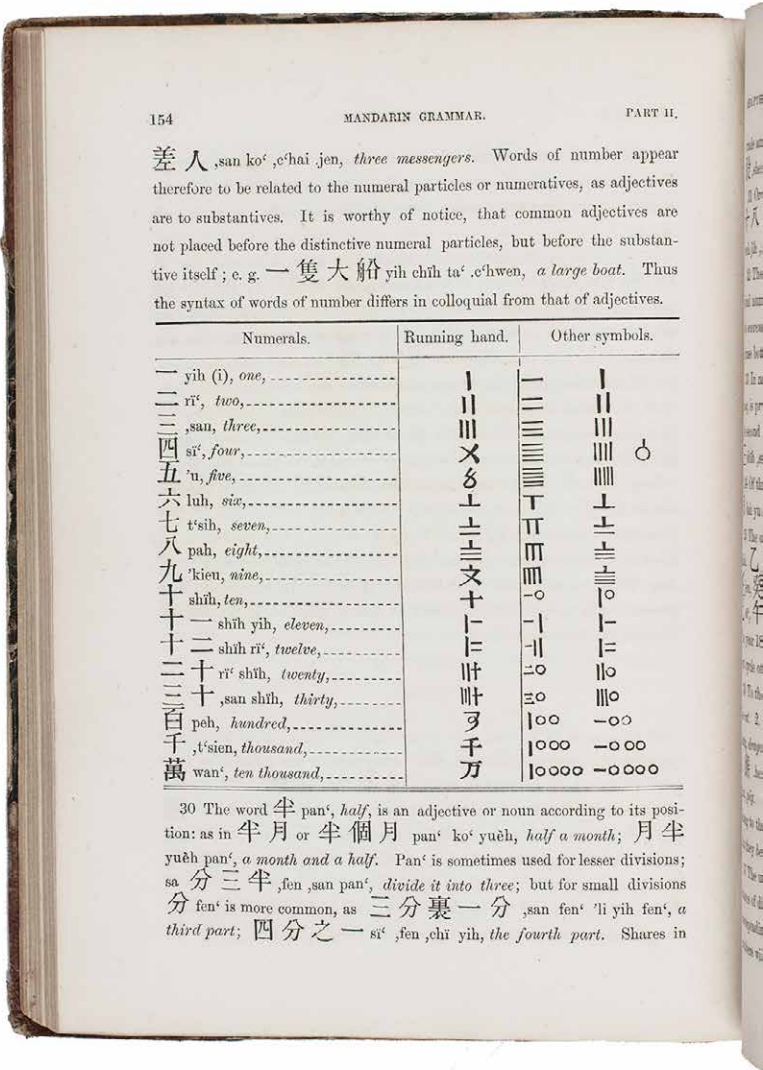 154 MANDARIN GRAMMAR. PART II.
差人 ,san ko‘ ,c‘hai .jen, three messengers. Words of number appear
therefore to be related to the numeral particles or numeratives, as adjectives
are to substantives. It is worthy of notice, that common adjectives are
not placed before the distinctive numeral particles, but before the substan-
tive itself; e. g. 一隻大船 yih chïh ta‘ .c‘hwen, a large boat. Thus
the syntax of words of number differs in colloquial from that of adjectives.
Numerals. Running hand. Other symbols.
一 yih (i), one, 〡 一 〡
二 rï‘, two, 〢 二 〢
三 ,san, three, 〣 三 〣
四 sï‘, four, 〤
五 ’u, five,
六 luh, six, 〦 丅 〦
七 t‘sih, seven, 〧
八 pah, eight, 〨
九 ’kieu, nine, 文
十 shïh, ten, 十 -o |o
十一 shïh yih, eleven, |- -| |-
十二 shïh rï‘, twelve, |= -|| |=
二十 rï‘ shïh, twenty, ||十 =o ||o
三十 ,san shïh, thirty, |||十 三o |||o
百 peh, hundred, |oo -oo
千 ,t‘sien, thousand, 千 |ooo -ooo
萬 wan‘, ten thousand, 万 |oooo -oooo
30 The word 半 pan‘, half, is an adjective or noun according to its posi-
tion: as in 半月 or 半個月 pan‘ ko‘ yuěh, half a month; 月半
yuěh pan‘, a month and a half. Pan‘ is sometimes used for lesser divisions;
sa 分三半 ,fen ,san pan‘, divide it into three; but for small divisions
分 fen‘ is more common, as 三分裏一分 ,san fen‘ ’li yih fen‘, a
third part; 四分之一 sï‘ ,fen ,chï yih, the fourth part. Shares in